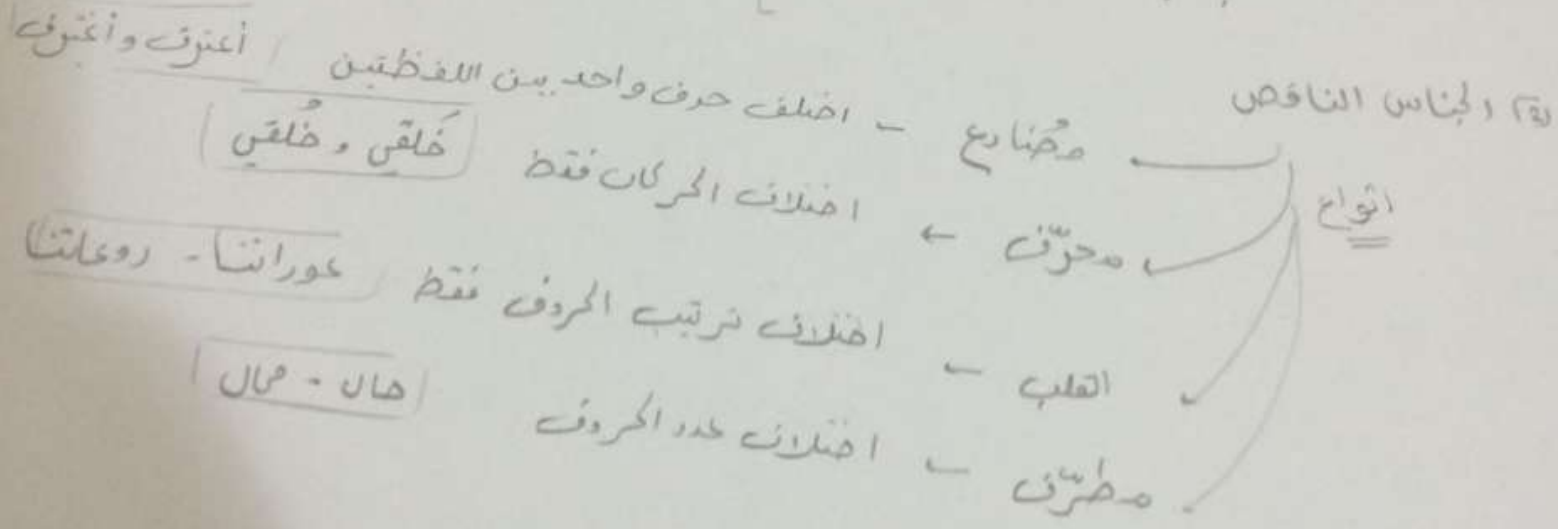 (٢) الجناس الناقص
انواع
مُضارع - اختلف حرف واحد بين اللفظتين أعترف وأغترف
محرّف ← اختلاف الحركات فقط خَلقي وخُلقي
القلب - اختلاف ترتيب الحروف فقط عوراتنا - روعاتنا
مطرّف - اختلاف عدد الحروف